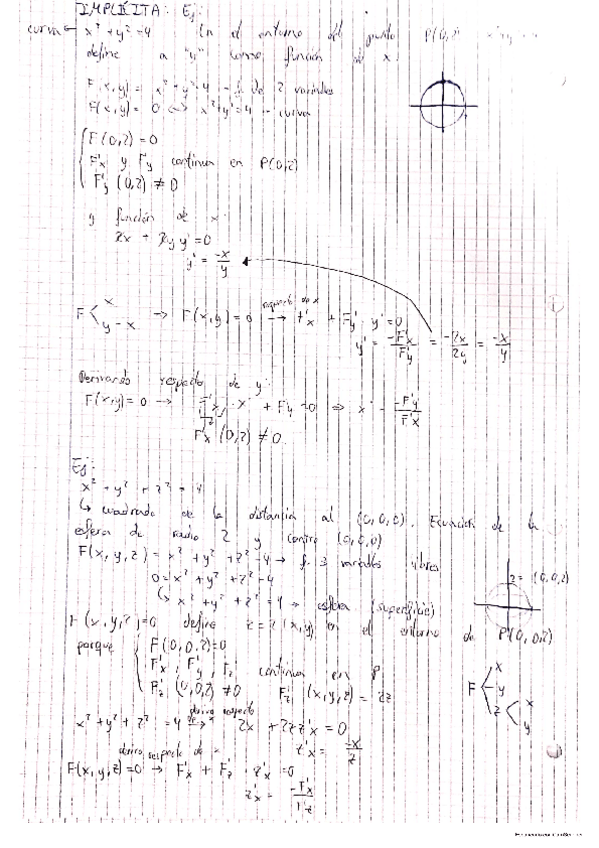 IMPLÍCITA: Ej:
curva ← x² + y² = 4 En el entorno del punto P(0,2)
define a "y" como función de x
F(x,y) = x² + y² - 4 → f. de 2 variables
F(x,y) = 0 ↔ x² + y² = 4 → curva
F(0,2) = 0
F'x y F'y continua en P(0,2)
F'y (0,2) ≠ 0
y función de x
2x + 2y y' = 0
y' = -x/y
F < x y - x → F(x,y) = 0 respecto de x → F'x + F'y · y' = 0
y' = -F'x/F'y = -2x/2y = -x/y
Derivando respecto de y:
F(x,y) = 0 → F'x · x' + F'y = 0 ⇒ x' = -F'y/F'x
F'x (0,2) ≠ 0
Ej:
x² + y² + z² = 4
↳ cuadrado de la distancia al (0,0,0). Ecuación de la
esfera de radio 2 y centro (0,0,0)
F(x,y,z) = x² + y² + z² - 4 → f. 3 variables libres
0 = x² + y² + z² - 4
z = (0,0,2)
↳ x² + y² + z² = 4 → esfera (superficie)
F(x,y,z) = 0 define z = z(x,y) en el entorno de P(0,0,2)
porque F(0,0,2) = 0
F'x, F'y, F'z continua en P
F'z (0,0,2) ≠ 0 F'z (x,y,z) = 2z
F < x y z < x y
x² + y² + z² = 4 derivo respecto de x → 2x + 2z z'x = 0
z'x = -x/z
derivo respecto de x
F(x,y,z) = 0 → F'x + F'z · z'x = 0
z'x = -F'x/F'z